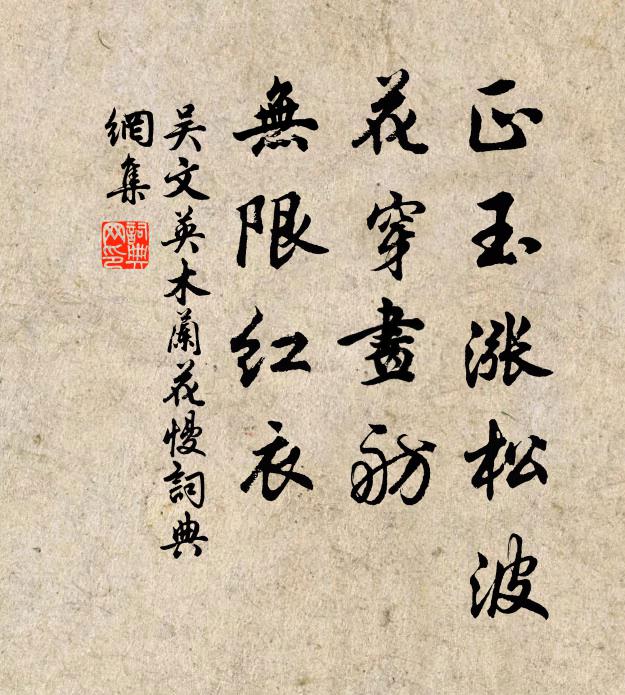 正玉漲松波
花穿畫舫
無限紅衣
吳文英木蘭花慢詞典
網集
詞典
网印